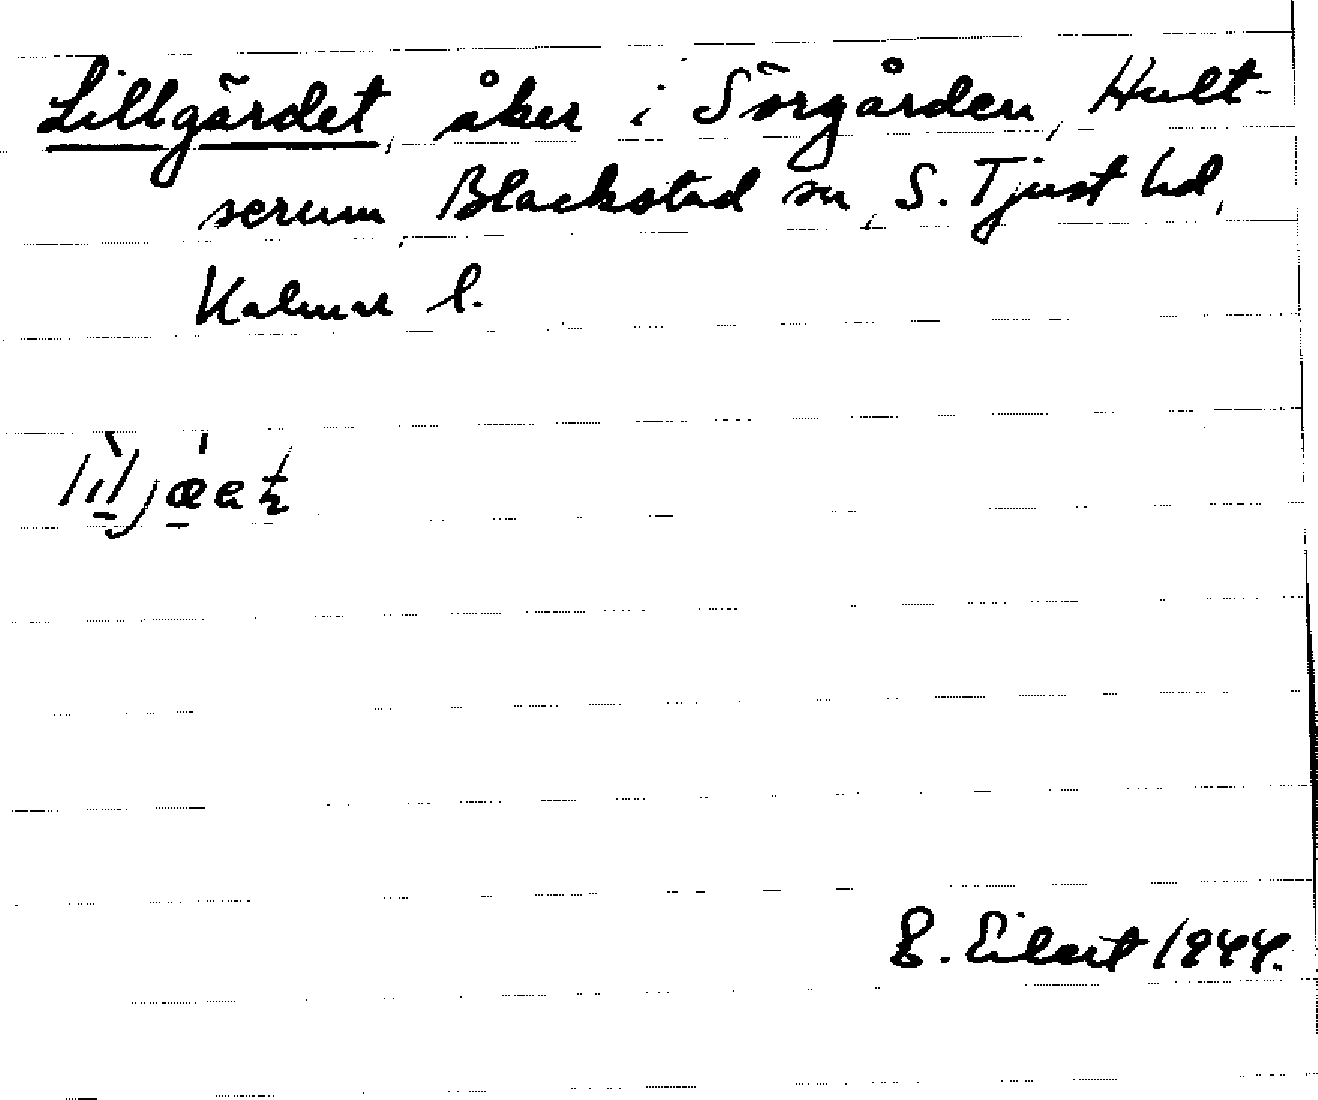 Lillgärdet, åker i Sörgården, Hult-
serum, Blackstad sn, S. Tjust hd,
Kalmar l.
E. Eilert 1944.